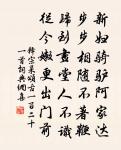 新妇骑驴阿家达
步步相随不著鞭
归到画堂人不识
从今懒更出门前
释宗杲颂古一百二十
一首词典网集